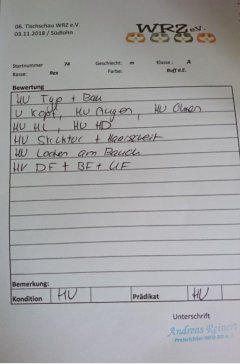 06. Tischschau WRZ e.V.
03.11.2018 / Südlohn
WRZ e.V.
Startnummer 74 Geschlecht: m Klasse: A
Rasse: Rex Farbe: Buff d.E.
Bewertung
HV Typ + Bau
V Kopf, HV Augen, HV Ohren
HV HL, HV HD
HV Struktur + Haarscheit
HV Locken am Bauch
HV DF + BF + UF
Bemerkung:
Kondition HV Prädikat HV
Unterschrift
Andreas Reinert
Preisrichter